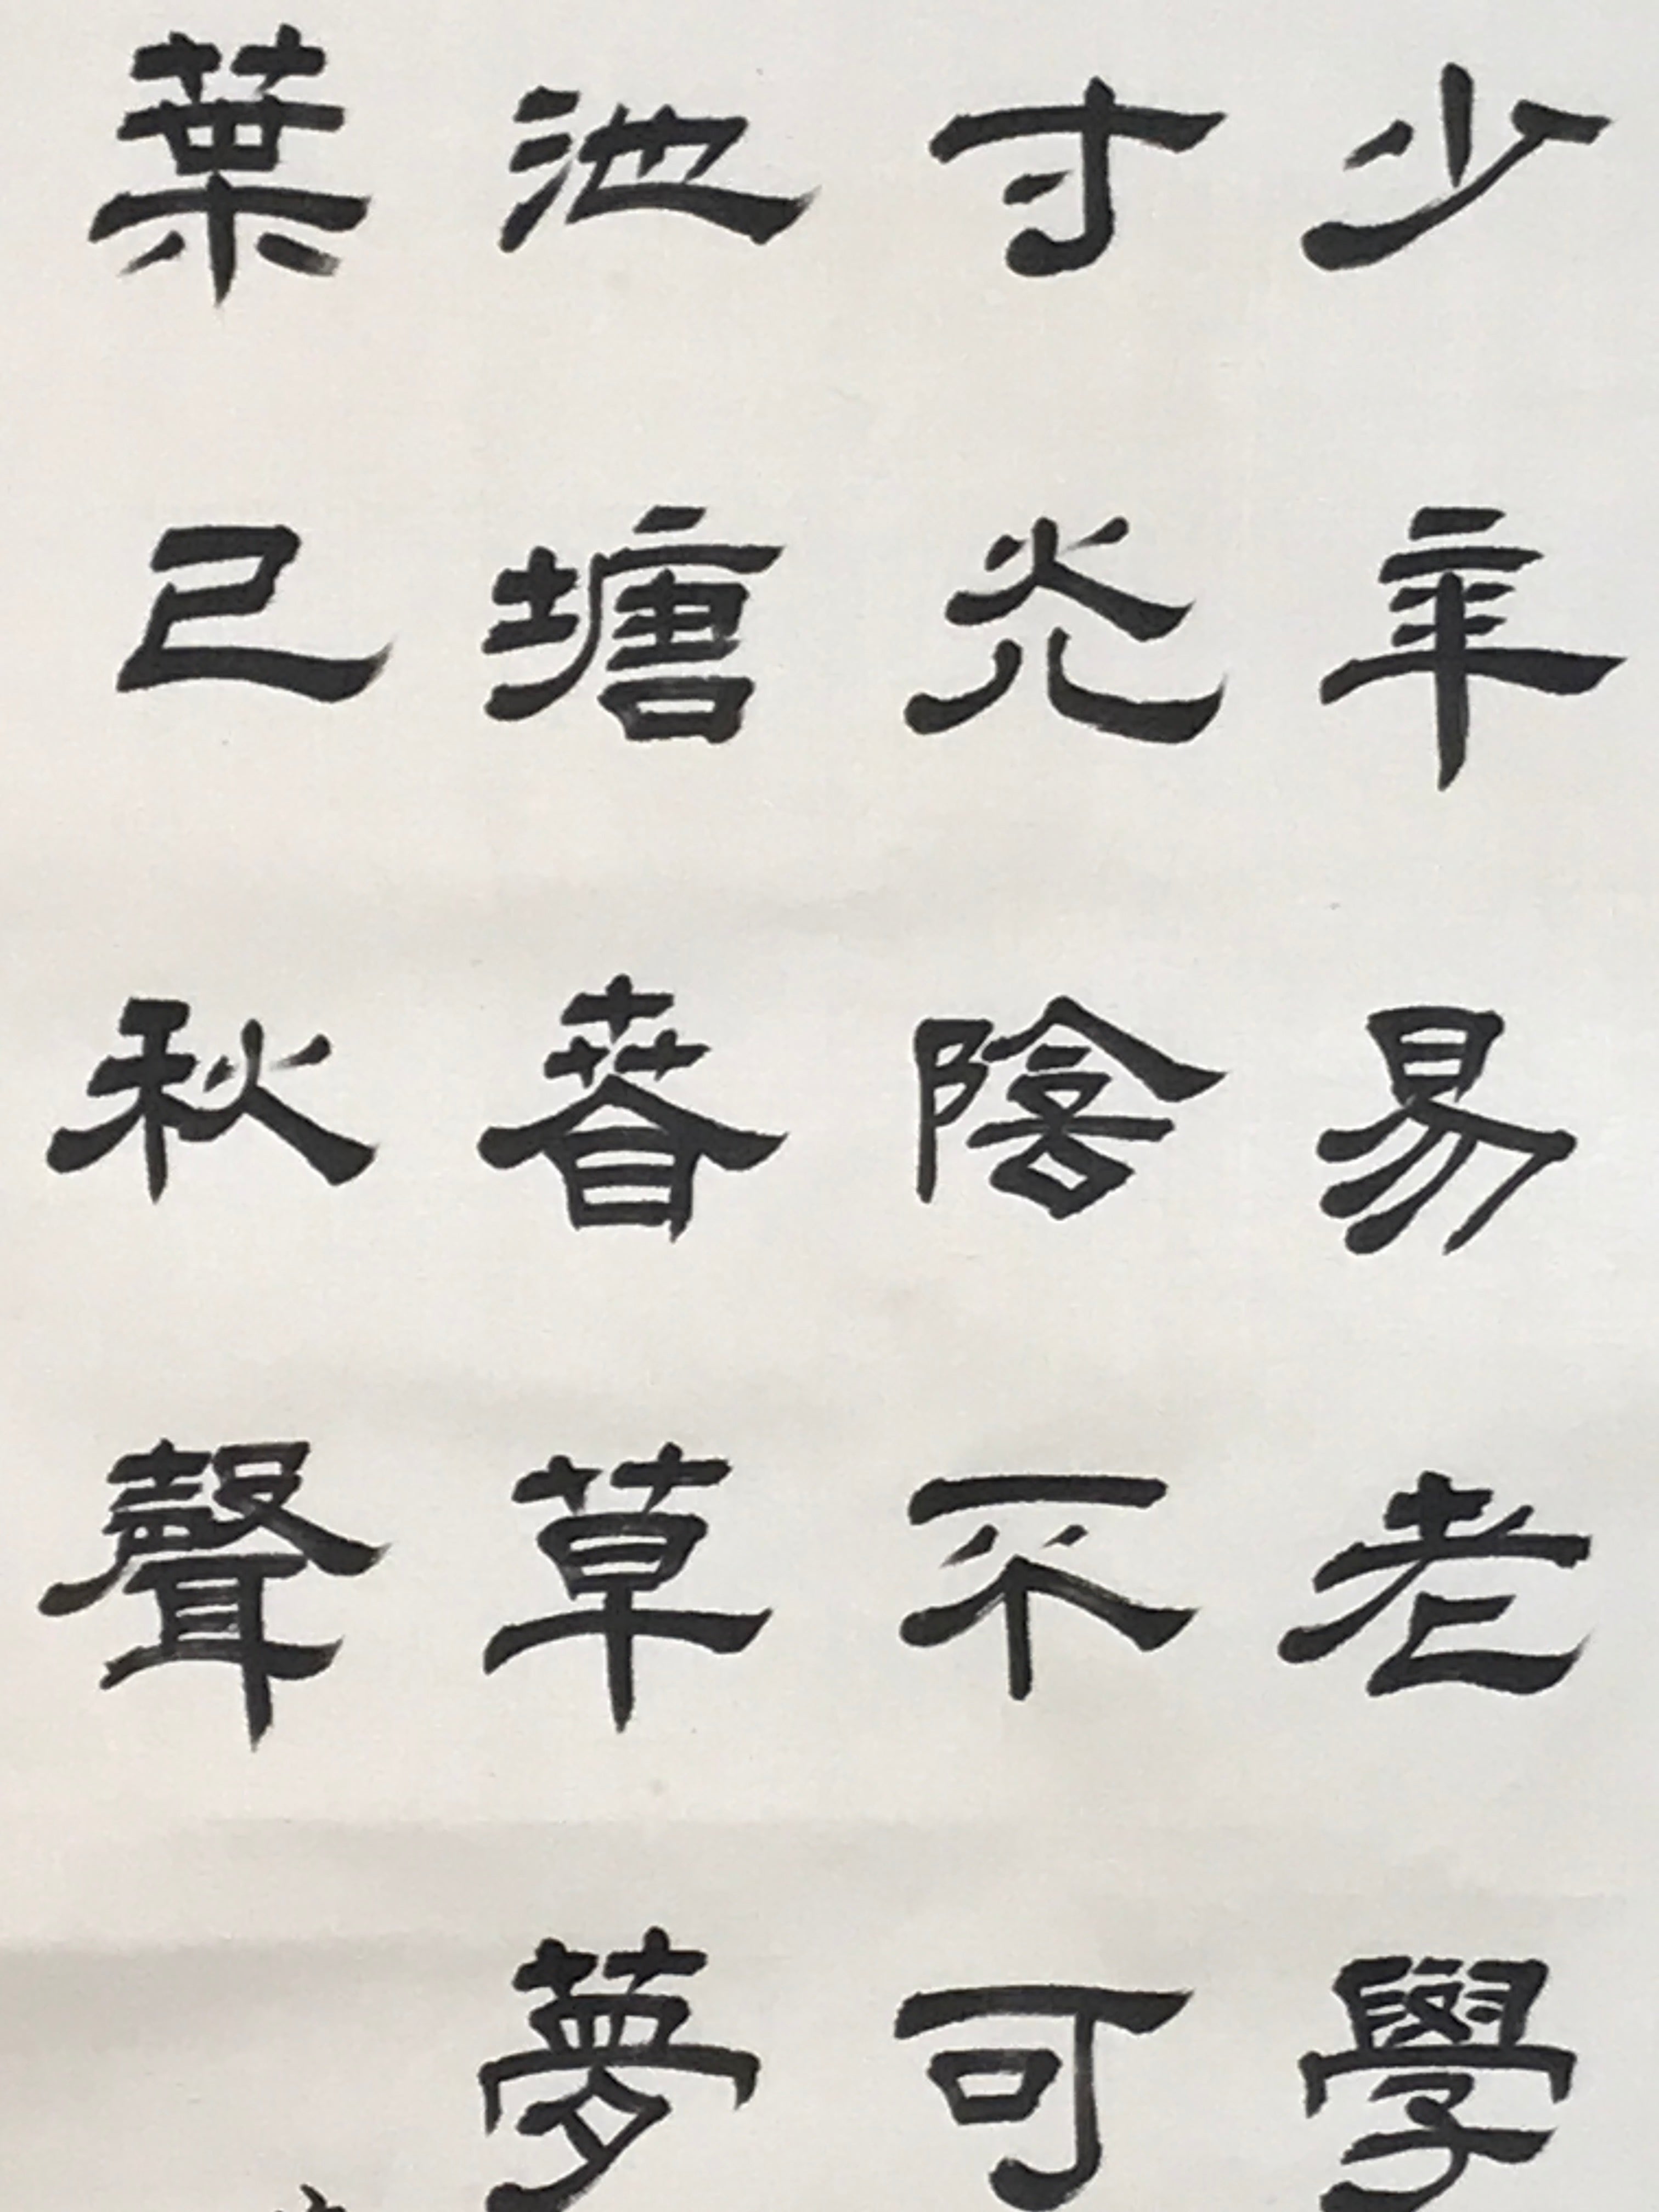 少年易老學
寸光陰不可
池塘春草夢
葉已秋聲